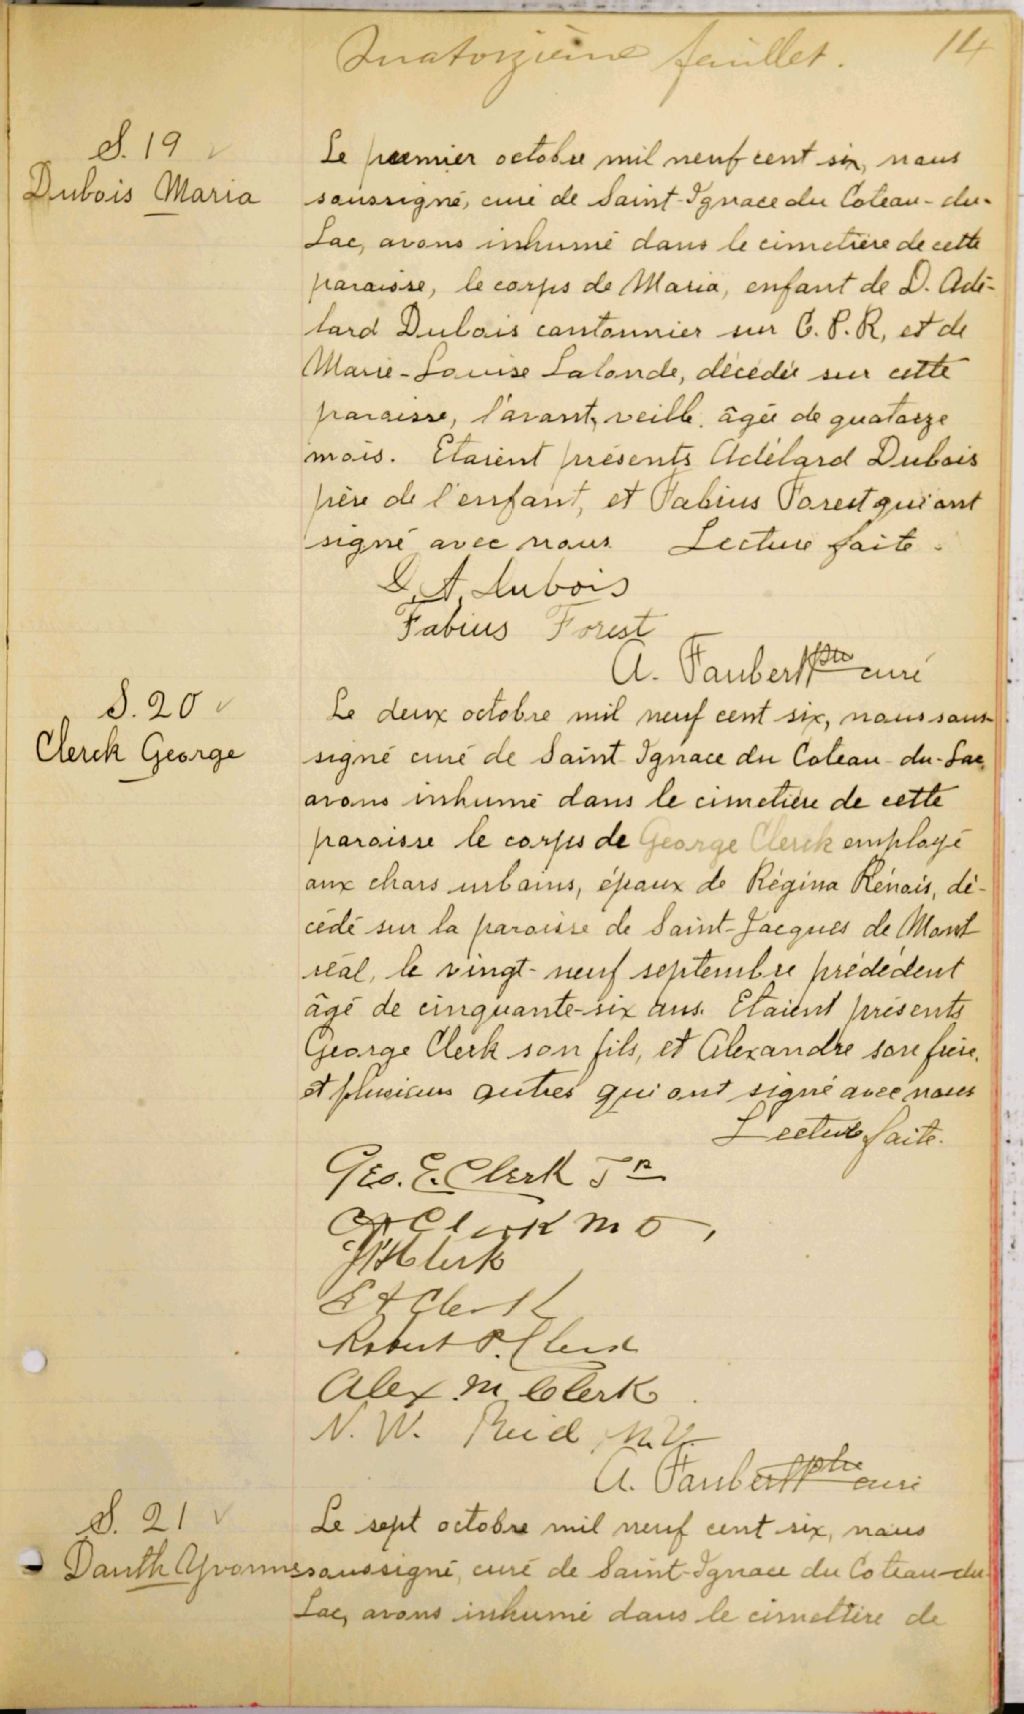 Quatorzième feuillet. 14
S. 19
Dubois Maria
Le premier octobre mil neuf cent six, nous
soussigné, curé de Saint-Ignace du Coteau-du-
Lac, avons inhumé dans le cimetière de cette
paroisse, le corps de Maria, enfant de D. Adé-
lard Dubois cantonnier sur C. P. R, et de
Marie-Louise Lalonde, décédée sur cette
paroisse, l'avant-veille, âgée de quatorze
mois. Etaient présents Adélard Dubois
père de l'enfant, et Fabius Forest qui ont
signé avec nous. Lecture faite.
D. A. Dubois
Fabius Forest
A. Faubert ptre curé
S. 20
Clerck George
Le deux octobre mil neuf cent six, nous sous-
signé curé de Saint Ignace du Coteau-du-Lac,
avons inhumé dans le cimetière de cette
paroisse le corps de George Clerck employé
aux chars urbains, époux de Régina Rénois, dé-
cédé sur la paroisse de Saint-Jacques de Mont
réal, le vingt-neuf septembre prédédent
âgé de cinquante-six ans. Etaient présents
George Clerk son fils, et Alexandre son frère,
et plusieurs autres qui ont signé avec nous
Lecture faite.
Geo. E. Clerk Jr
Clerk M D,
Clerk
E A Clerk
Robert P. Clerk
Alex M. Clerk
N. W. Reid
A. Faubert ptre curé
S. 21
Danth Yvonne
Le sept octobre mil neuf cent six, nous
soussigné, curé de Saint-Ignace du Coteau-du
Lac, avons inhumé dans le cimetière de